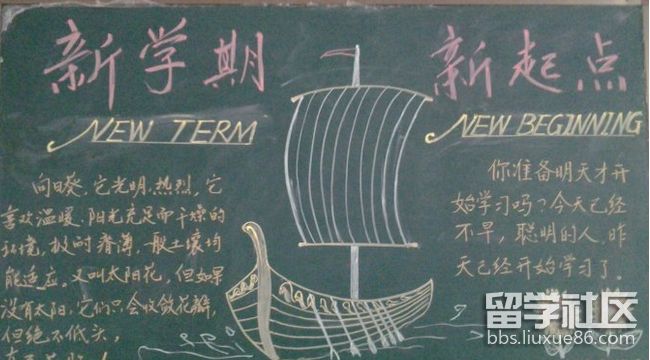 新学期
新起点
NEW TERM
NEW BEGINNING
向日葵，它光明，热烈，它
喜欢温暖，阳光充足而干燥的
环境，极耐瘠薄，一般土壤均
能适应。又叫太阳花，但如果
没有太阳，它们只会收敛花瓣，
但绝不低头，
你准备明天才开
始学习吗？今天已经
不早，聪明的人，昨
天已经开始学习了。
留学社区
bbs.liuxue86.com